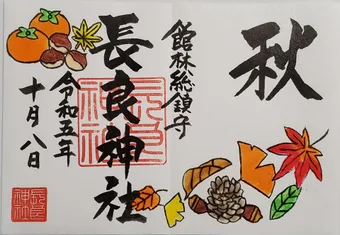 秋
館林総鎮守
長良神社
令和五年
十月八日
長良
神社